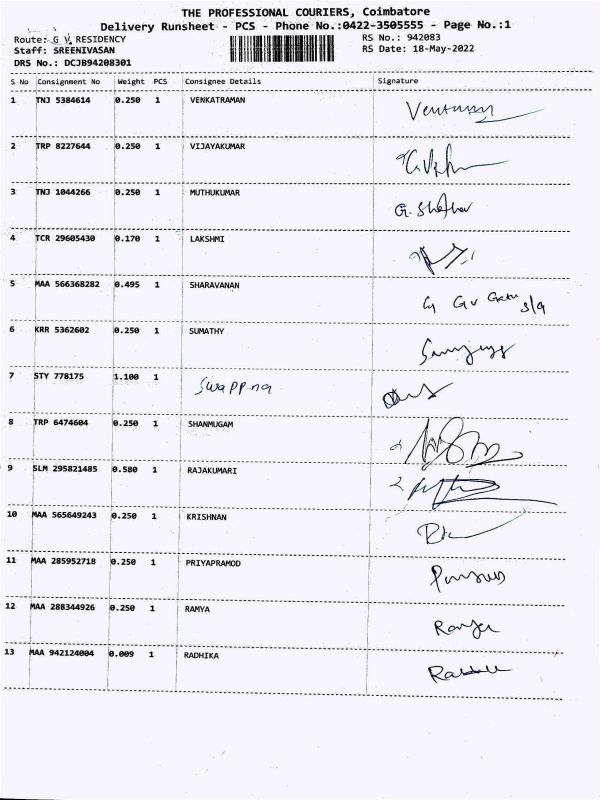 THE PROFESSIONAL COURIERS, Coimbatore
Delivery Runsheet - PCS - Phone No.:0422-3505555 - Page No.:1
Route: G V RESIDENCY RS No.: 942083
Staff: SREENIVASAN RS Date: 18-May-2022
DRS No.: DCJB94208301
S No Consignment No Weight PCS Consignee Details Signature
1 TNJ 5384614 0.250 1 VENKATRAMAN
2 TRP 8227644 0.250 1 VIJAYAKUMAR
3 TNJ 1044266 0.250 1 MUTHUKUMAR
4 TCR 29605430 0.170 1 LAKSHMI
5 MAA 566368282 0.495 1 SHARAVANAN
6 KRR 5362602 0.250 1 SUMATHY
7 STY 778175 1.100 1 Swappna
8 TRP 6474604 0.250 1 SHANMUGAM
9 SLM 295821485 0.580 1 RAJAKUMARI
10 MAA 565649243 0.250 1 KRISHNAN
11 MAA 285952718 0.250 1 PRIYAPRAMOD
12 MAA 288344926 0.250 1 RAMYA
13 MAA 942124004 0.009 1 RADHIKA